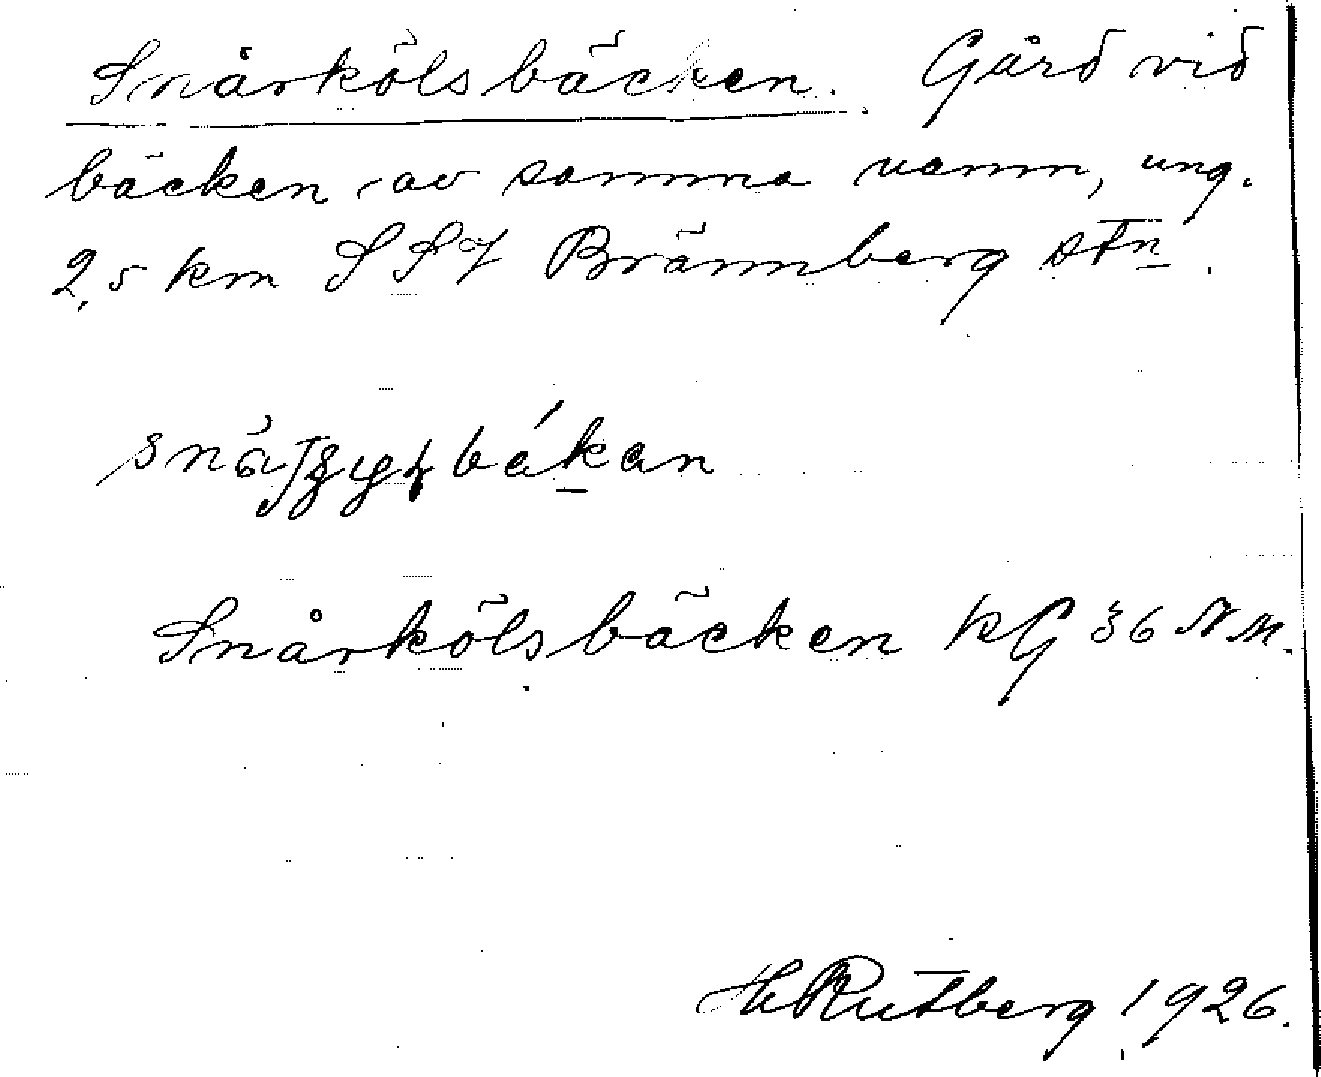 Snårkölsbäcken. Gård vid
bäcken av samma namn, ung.
2,5 km SSV Brännberg stn.
Snårkölsbäcken KG 36 NM.
H Rutberg 1926.